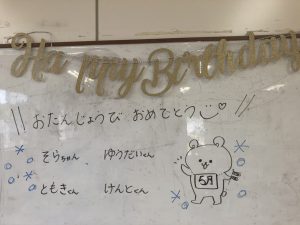 Happy Birthday
\\ おたんじょうび おめでとう //
そらちゃん ゆうだいくん
ともきくん けんとくん
5月